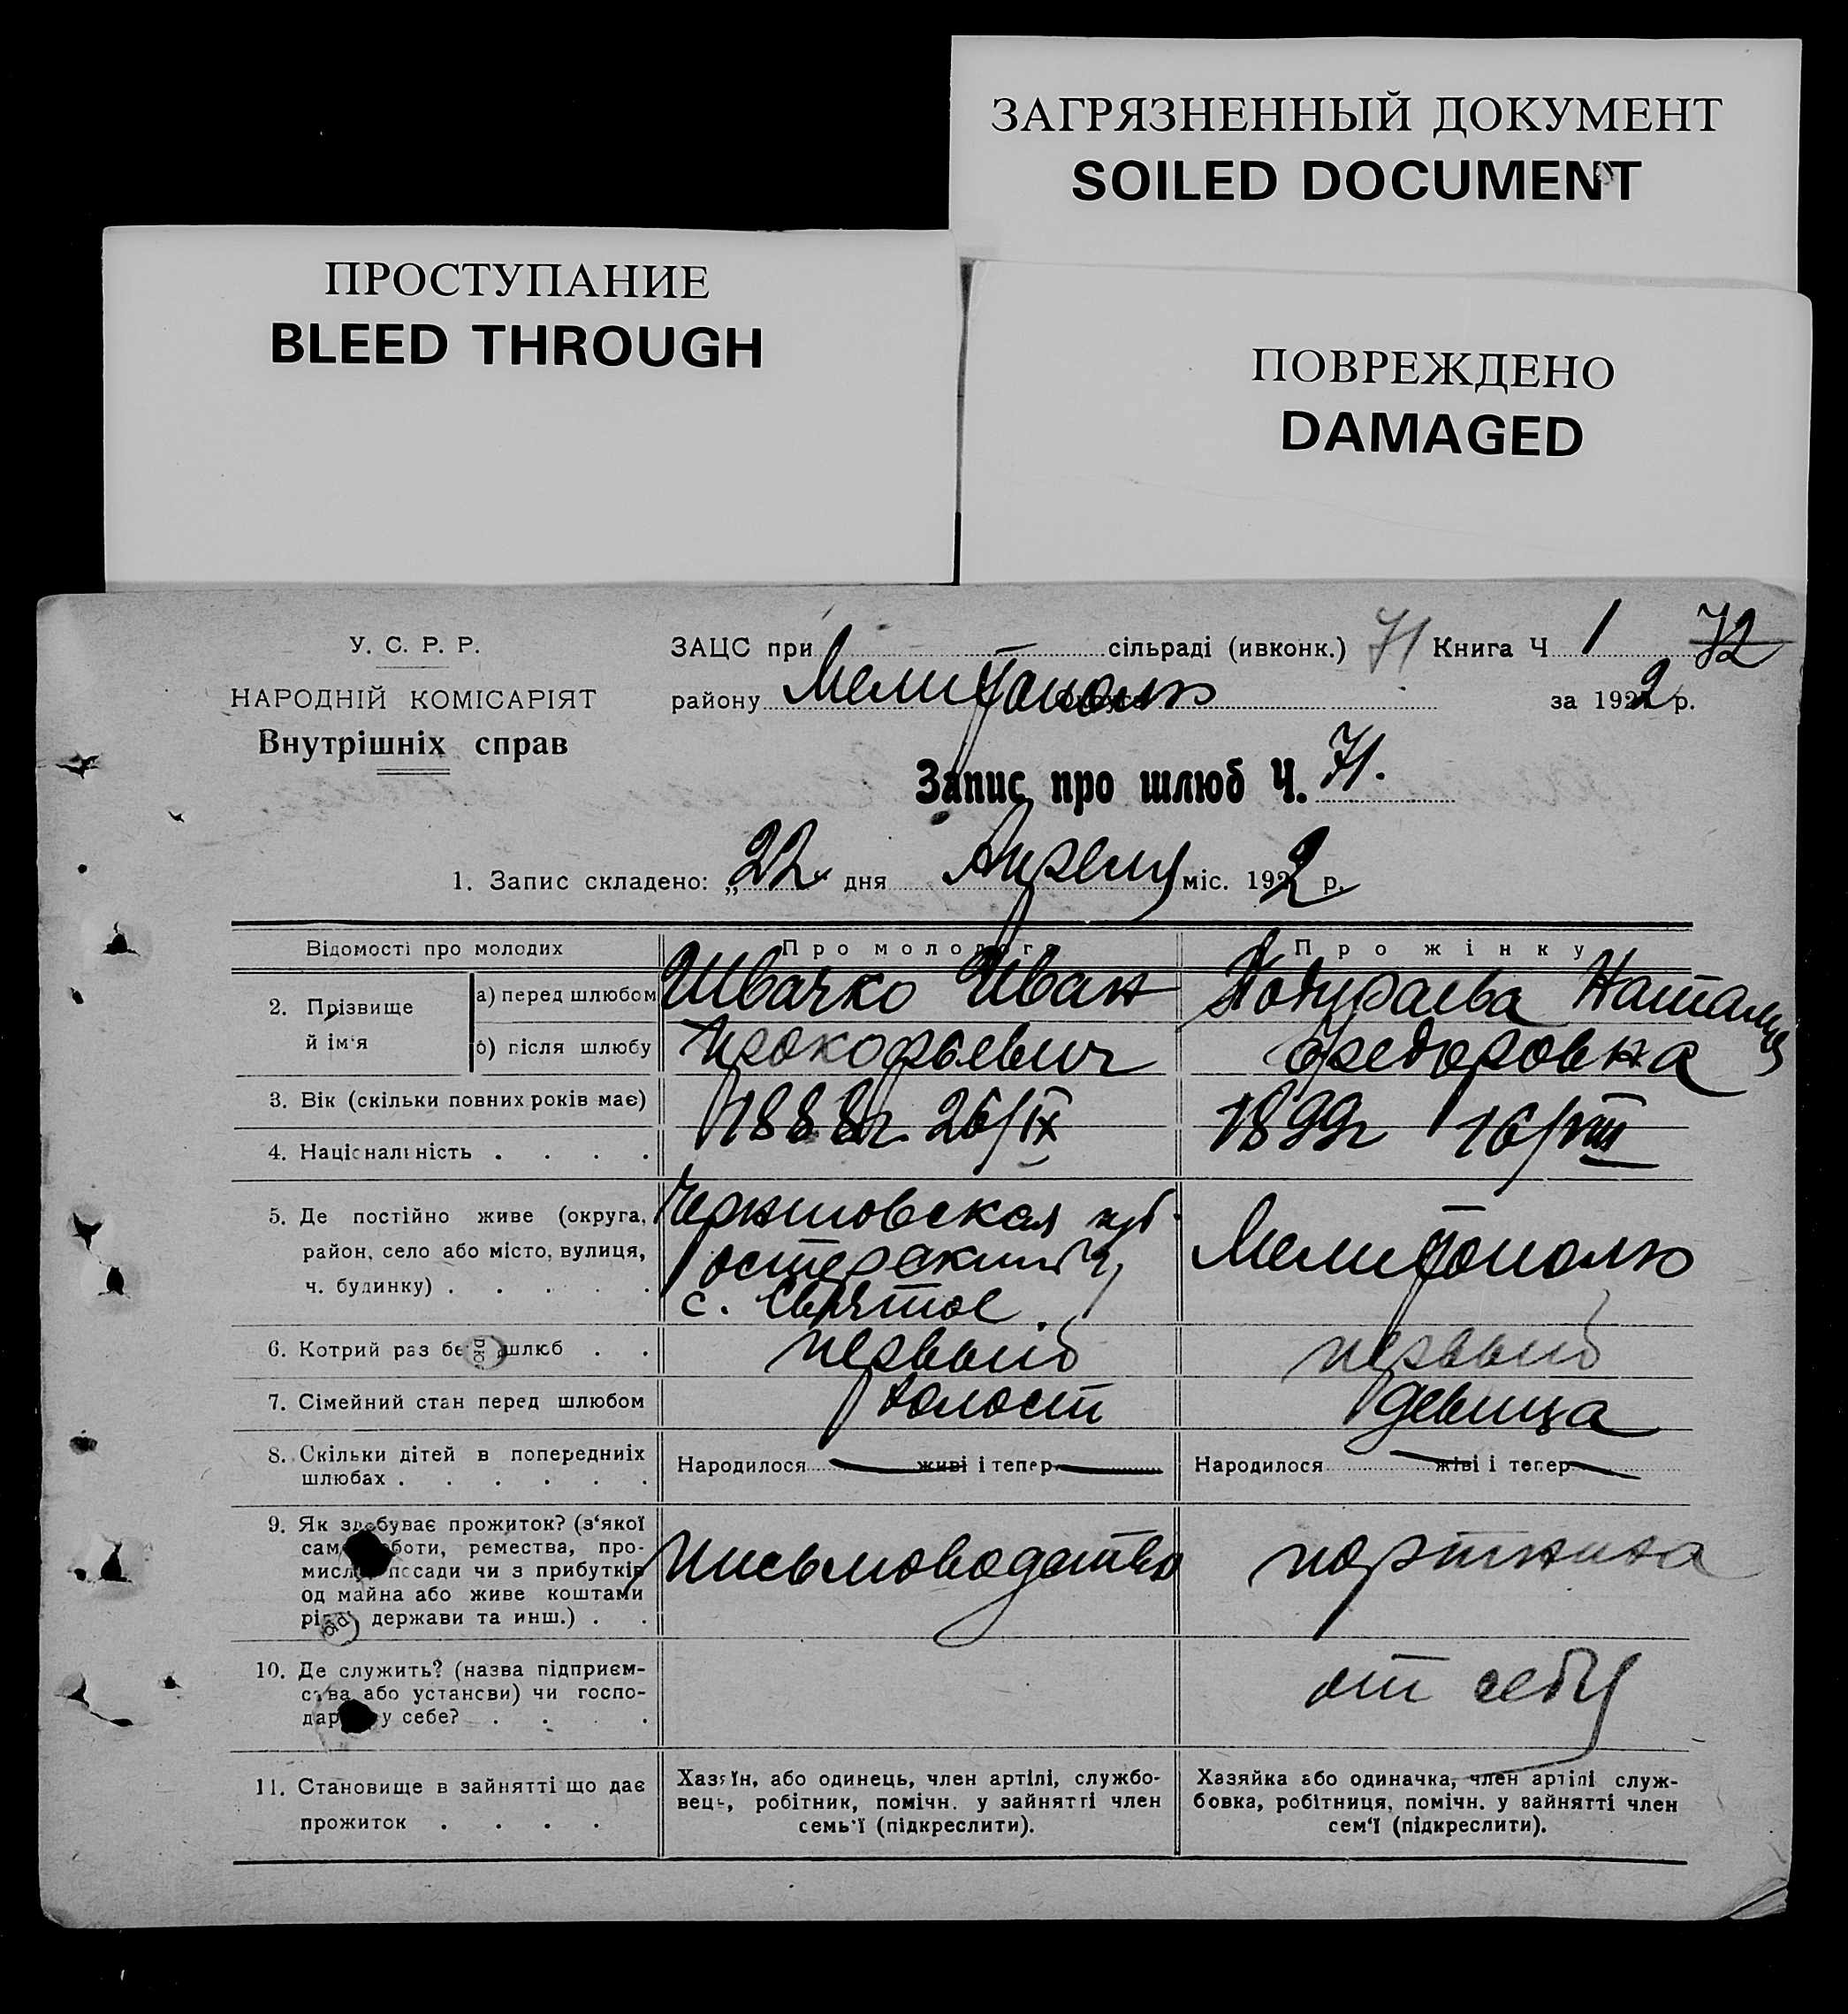 ЗАГРЯЗНЕННЫЙ ДОКУМЕНТ
SOILED DOCUMENT
ПРОСТУПАНИЕ
BLEED THROUGH
ПОВРЕЖДЕНО
DAMAGED
У. С. Р. Р.
НАРОДНІЙ КОМІСАРІЯТ
Внутрішніх справ
ЗАЦС при сільраді (ивконк.) 71 Книга Ч 1 72
району Мелитополь за 1922 р.
Запис про шлюб Ч. 71.
1. Запис складено: „22“ дня Апреля міс. 1922 р.
Відомості про молодих
Про молодого
Про жінку
2. Прізвище й ім'я
а) перед шлюбом
б) після шлюбу
Швачко Иван
Прокофьевич
Наталия
Федоровна
3. Вік (скільки повних років має)
1888г. 26/IX
1899г 16/VIII
4. Національність . . . .
5. Де постійно живе (округа,
район, село або місто, вулиця,
ч. будинку) . . . . .
Черниговская губ.
Остерский у,
с. Святое
Мелитополь
6. Котрий раз бе шлюб . .
первый
первый
7. Сімейний стан перед шлюбом
холост
девица
8. Скільки дітей в попередниіх
шлюбах . . . . . .
Народилося живі і тепер
Народилося живі і тепер
9. Як здобуває прожиток? (з'якої
сам боти, ремества, про-
мисл посади чи з прибутків
од майна або живе коштами
рі держави та инш.) . .
письмоводство
портниха
10. Де служить? (назва підприєм-
ства або установи) чи госпо-
дар у себе? . . . .
от себя
11. Становище в зайнятті що дає
прожиток . . . .
Хазяїн, або одинець, член артілі, службо-
вець, робітник, помічн. у зайнятті член
семь'ї (підкреслити).
Хазяйка або одиначка, член артілі служ-
бовка, робітниця, помічн. у зайнятті член
сем'ї (підкреслити).